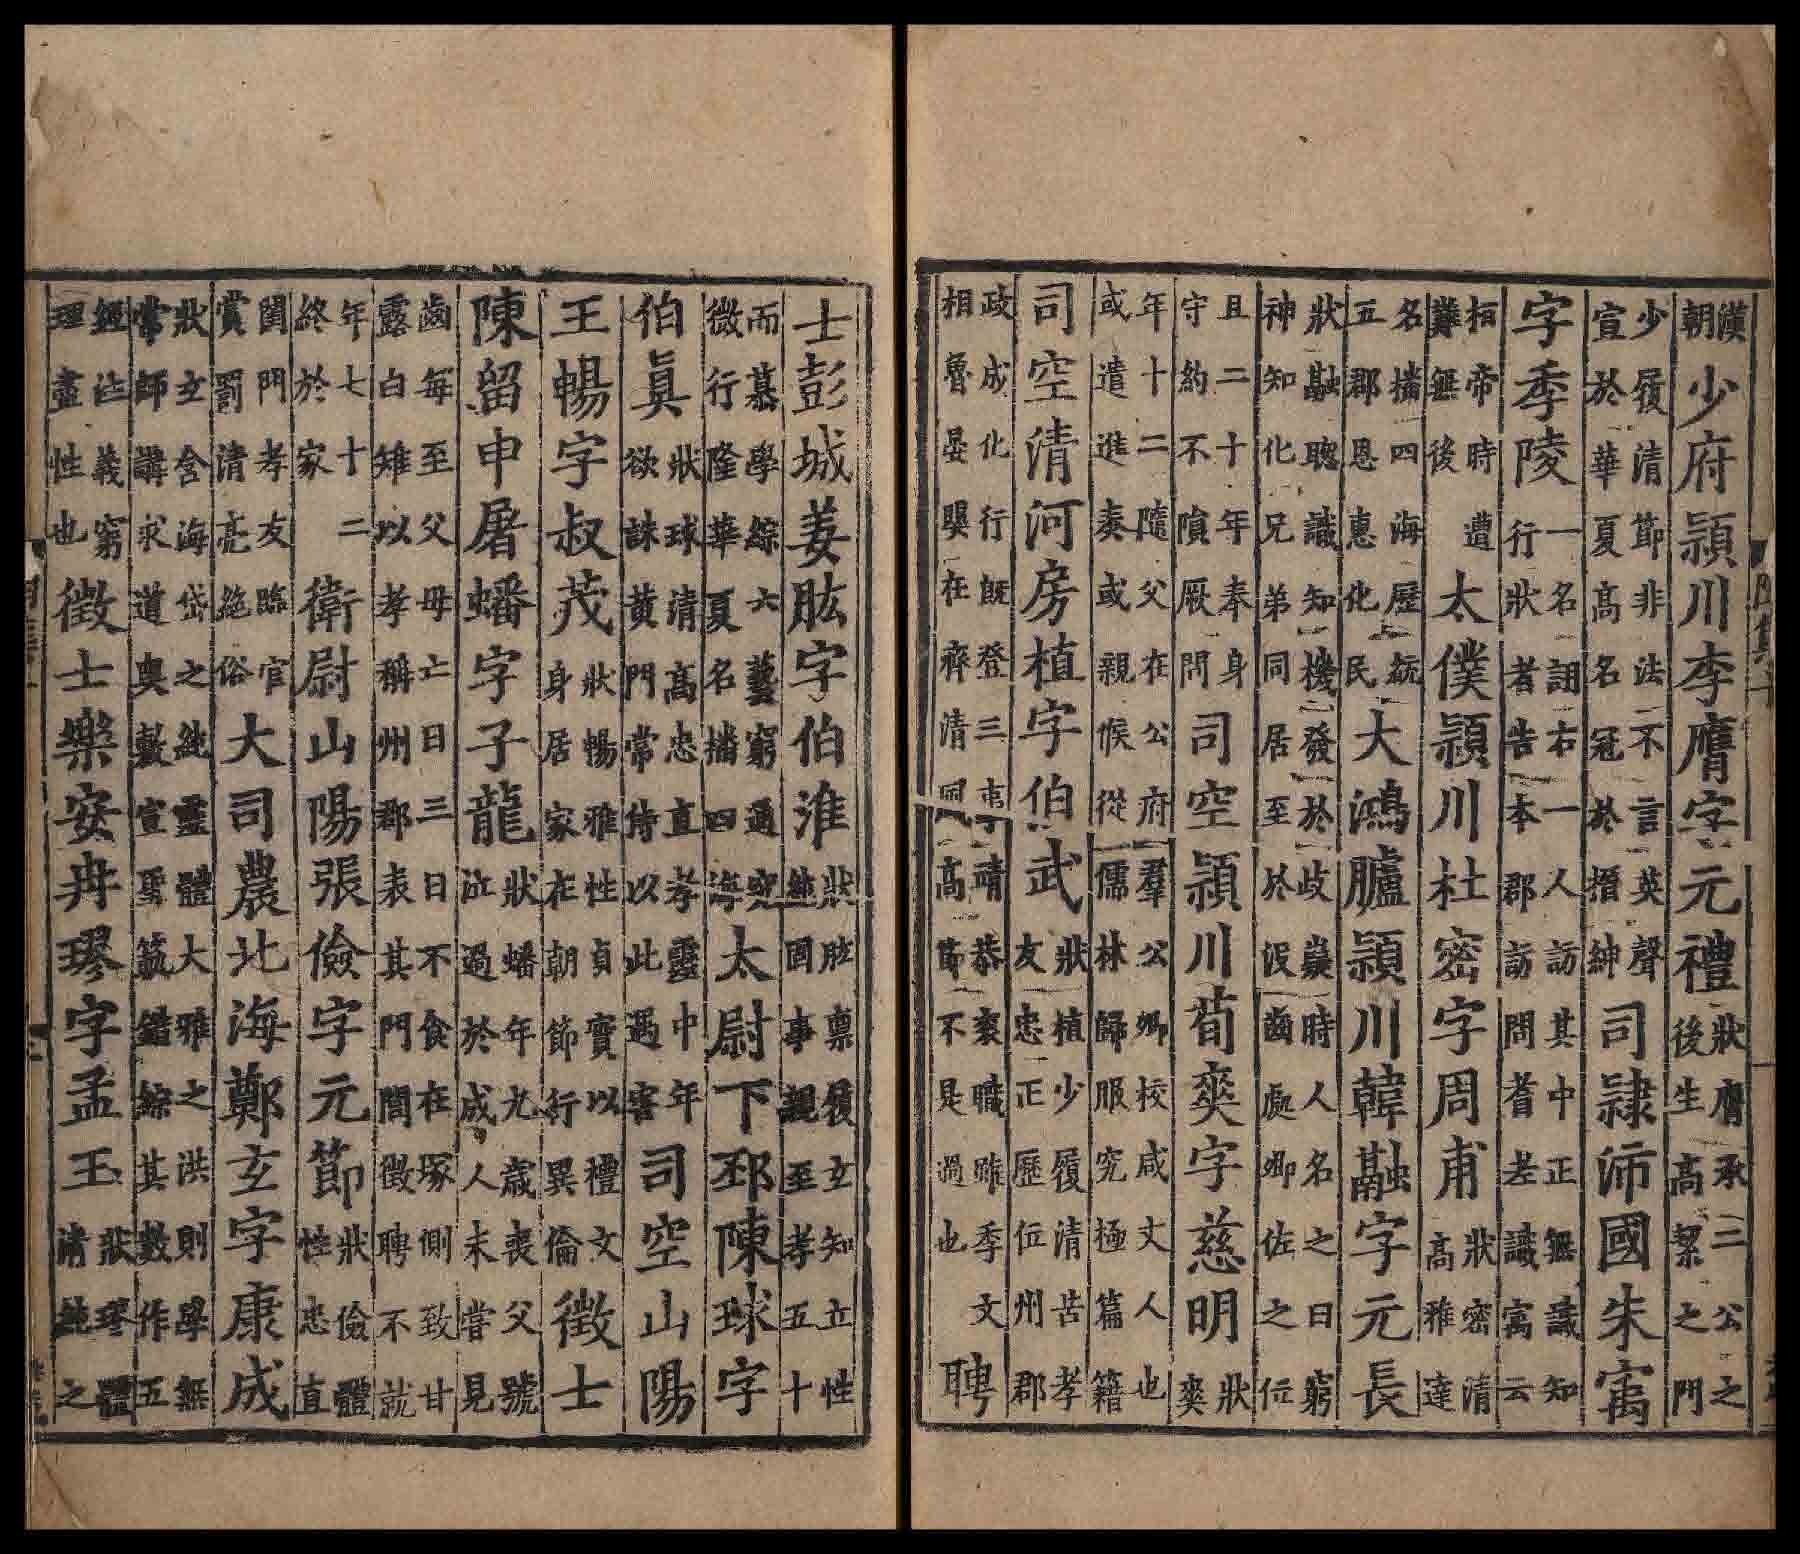 漢朝少府潁川李膺字元禮狀膺承三公之後生高絜之門
少履清節非法不言英聲宣於華夏高名冠於搢紳司隷沛國朱㝢
字季陵一名詡右一人訪其中正無識知行狀者告本郡訪問耆老識寓云
桓帝時遭難無後太僕潁川杜密字周甫狀密清高雅達
名播四海歷統五郡恩惠化民大鴻臚潁川韓融字元長
狀融聰識知機發於岐嶷時人名之曰窮神知化兄弟同居至於沒齒處卿佐之位
且二十年奉身守約不隕厥問司空潁川荀爽字慈明狀爽
年十二隨父在公府羣公卿校咸丈人也或遣進奏或親候從儒林歸服究極篇籍
司空清河房植字伯武狀植少履清苦孝友忠正歷位州郡
政成化行旣登三事靖恭袞職雖季文相魯晏嬰在齊清風高節不是過也聘
士彭城姜肱字伯淮狀肱稟履玄知立性純固事親至孝五十
而慕學綜六藝窮通究微行隆華夏名播四海太尉下邳陳球字
伯眞狀球清高忠直孝靈中年欲誅黄門常侍以此遇害司空山陽
王暢字叔茂狀暢雅性貞實以禮文身居家在朝節行異倫徵士
陳留申屠蟠字子龍狀蟠年九歲喪父號泣過於成人未嘗見
齒每至父母亡日三日不食在塚側致甘露白雉以孝稱州郡表其門閭徵聘不就
年七十二終於家衛尉山陽張儉字元節狀儉體性忠直
閨門孝友臨官賞罰清亮絶俗大司農北海鄭玄字康成
狀玄含海岱之純靈體大雅之洪則學無常師講求道奥敷宣聖範錯綜其數作五
經注義窮理盡性也徵士樂安冉璆字孟玉狀璆體清純之